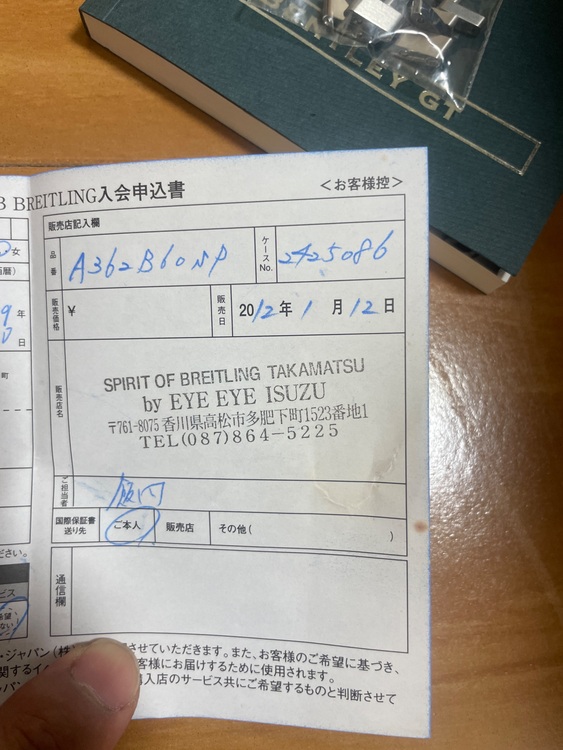 TLEY GT
B BREITLING入会申込書
<お客様控>
販売店記入欄
品番 A362B60NP
ケースNo. 2425086
販売価格 ¥
販売日 2012年 1月 12日
販売店名
SPIRIT OF BREITLING TAKAMATSU
by EYE EYE ISUZU
〒761-8075 香川県高松市多肥下町1523番地1
TEL(087)864-5225
ご担当者
国際保証書送り先 ご本人 販売店 その他( )
通信欄
女
暦)
9年
0日
町
ださい。
ービス
希望
ない
・ジャパン(株)
させていただきます。また、お客様のご希望に基づき、
関するイ
客様にお届けするために使用されます。
パン
入店のサービス共にご希望するものと判断させて